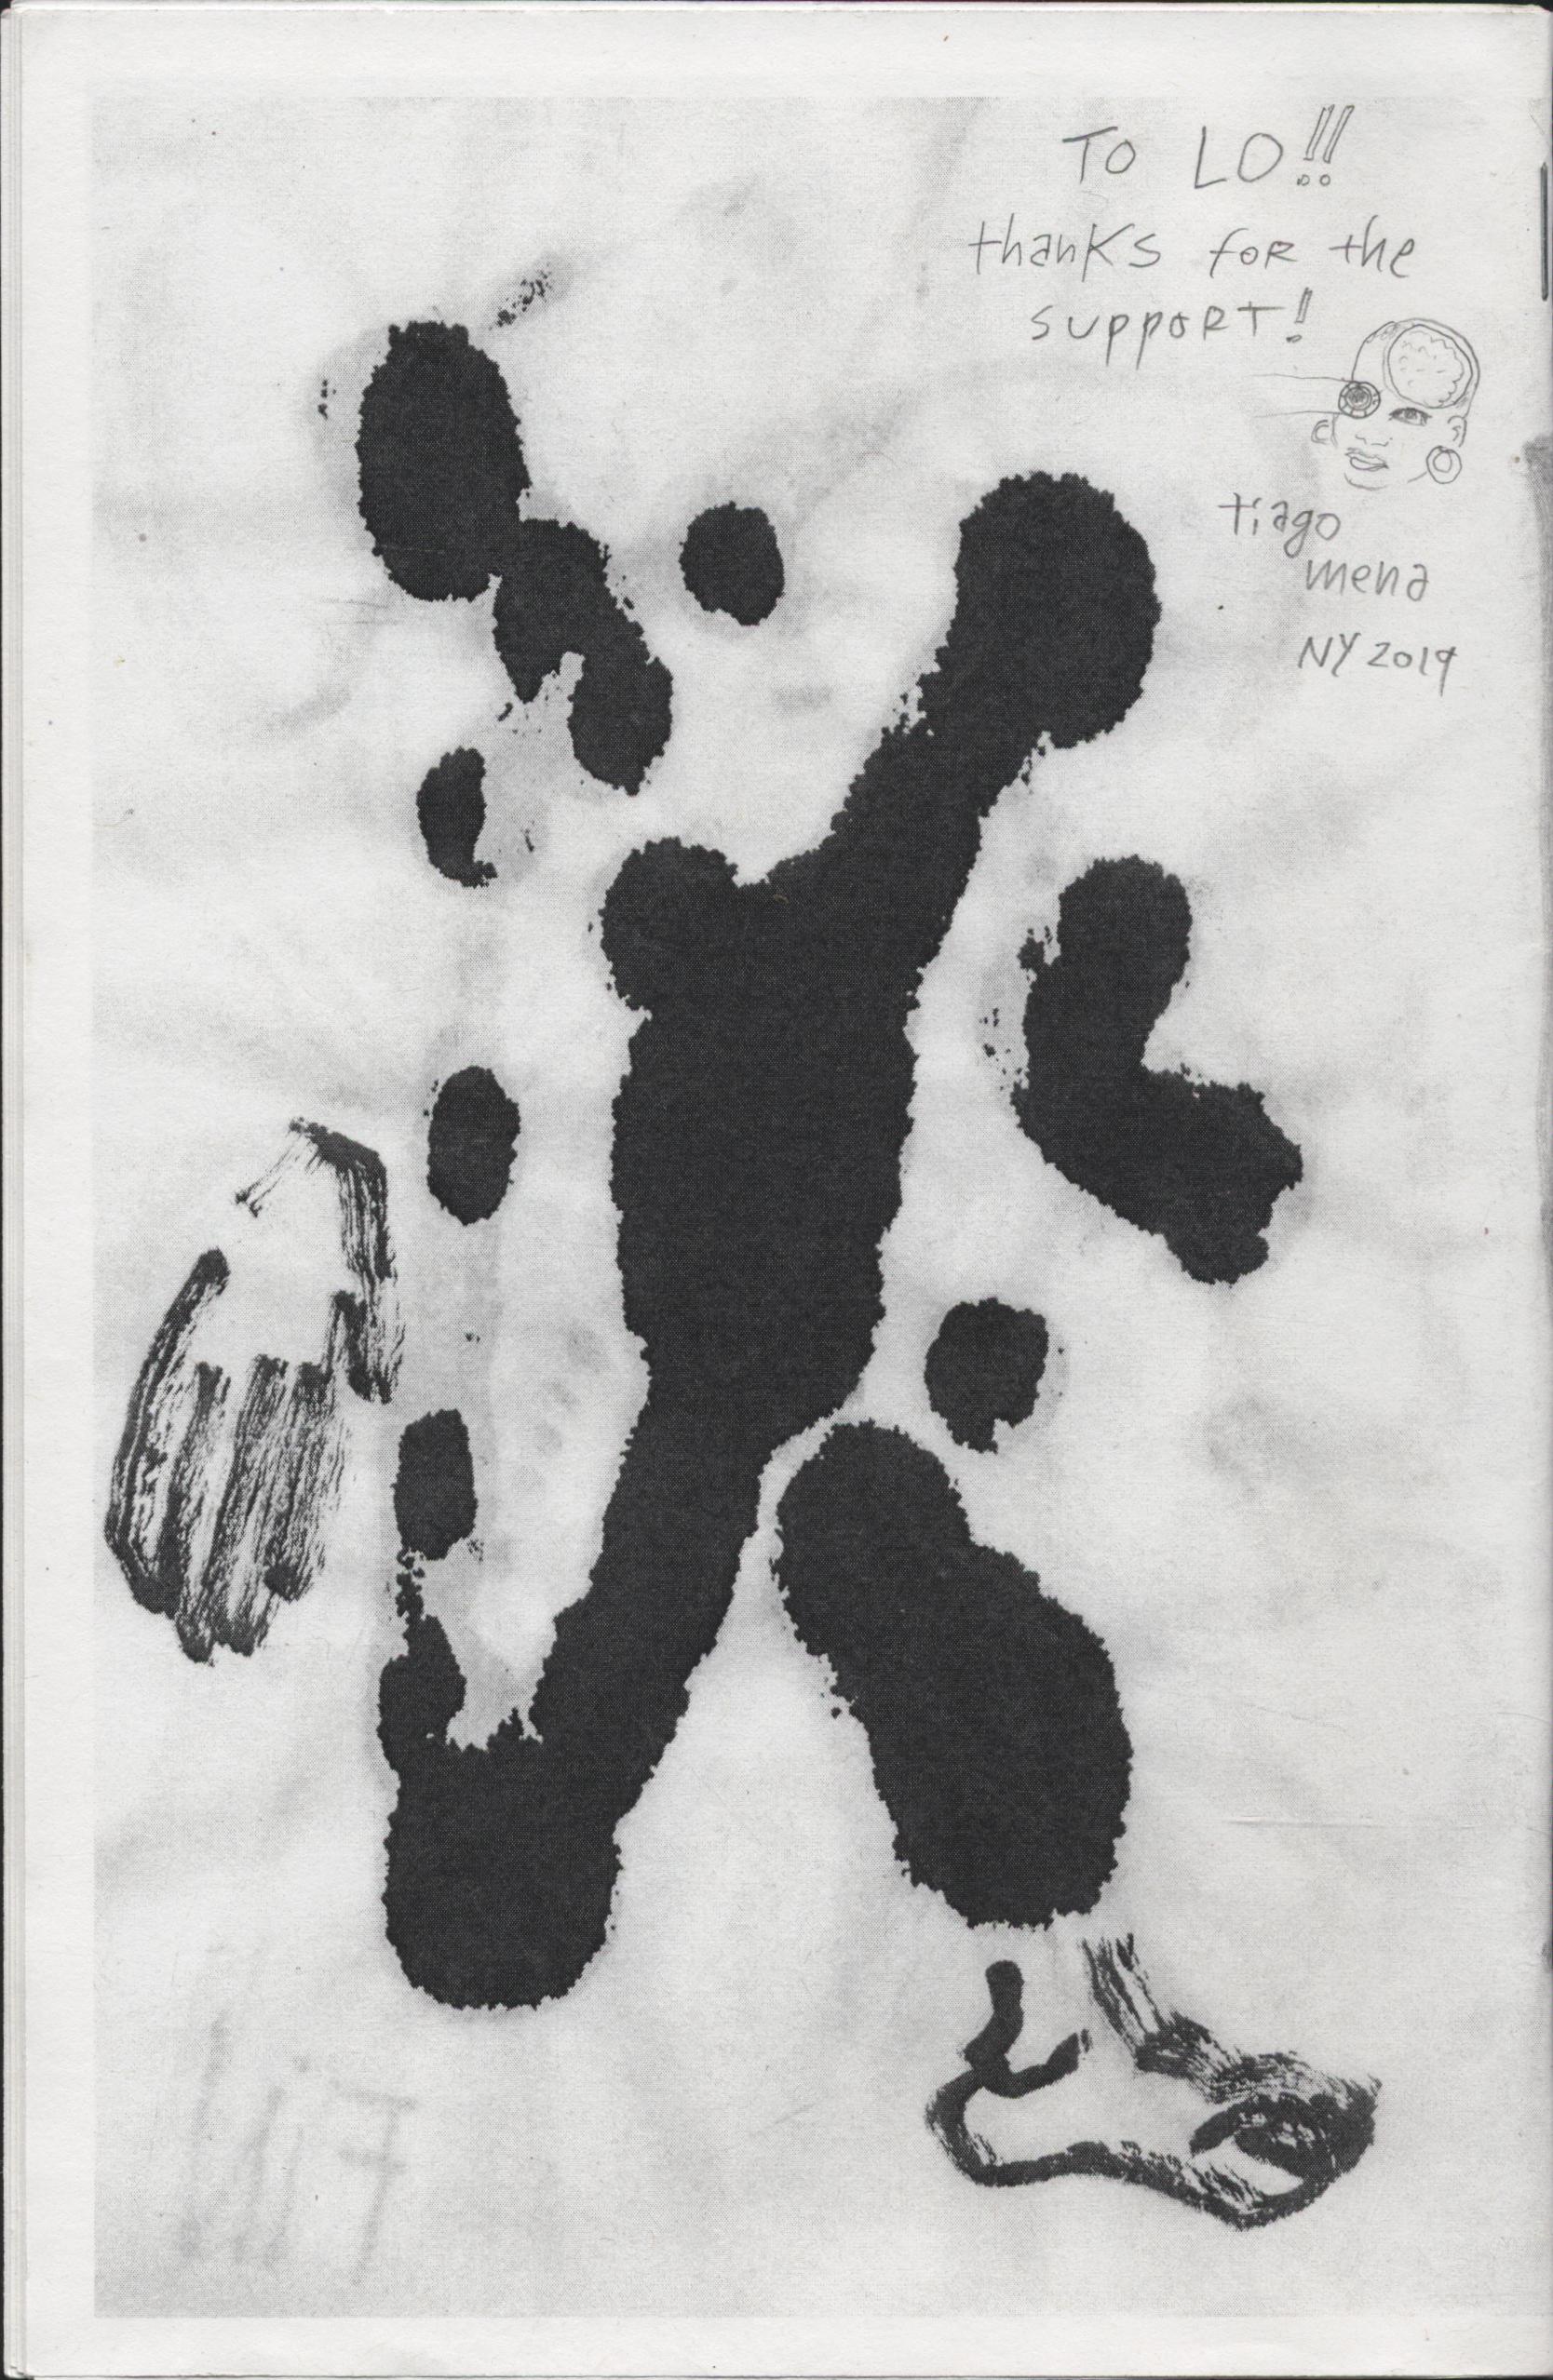 TO LO!!
thanks for the
support!
tiago
mena
NY 2019